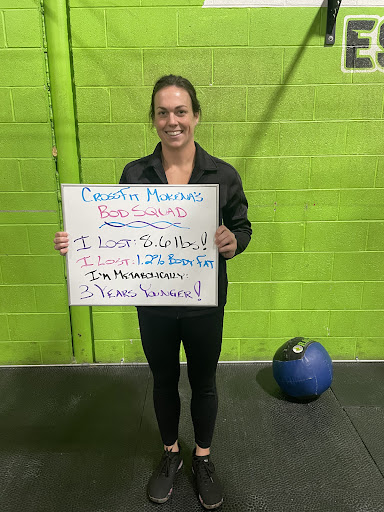 ES
CrossFit Mokena's
Bod Squad
I Lost: 8.6 lbs!
I Lost: 1.2% Body Fat
I'm Metabolically:
3 Years Younger!